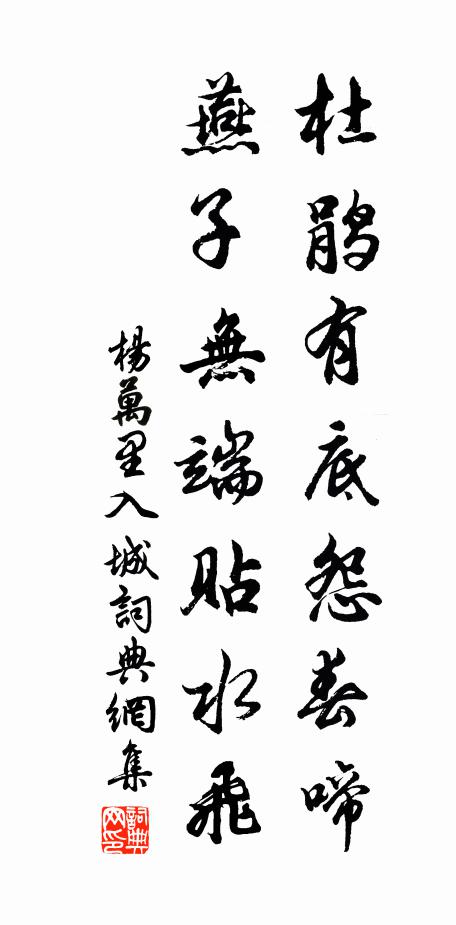 杜鹃有底怨春啼
燕子無端貼水飛
楊萬里入城詞典網集
詞典網印